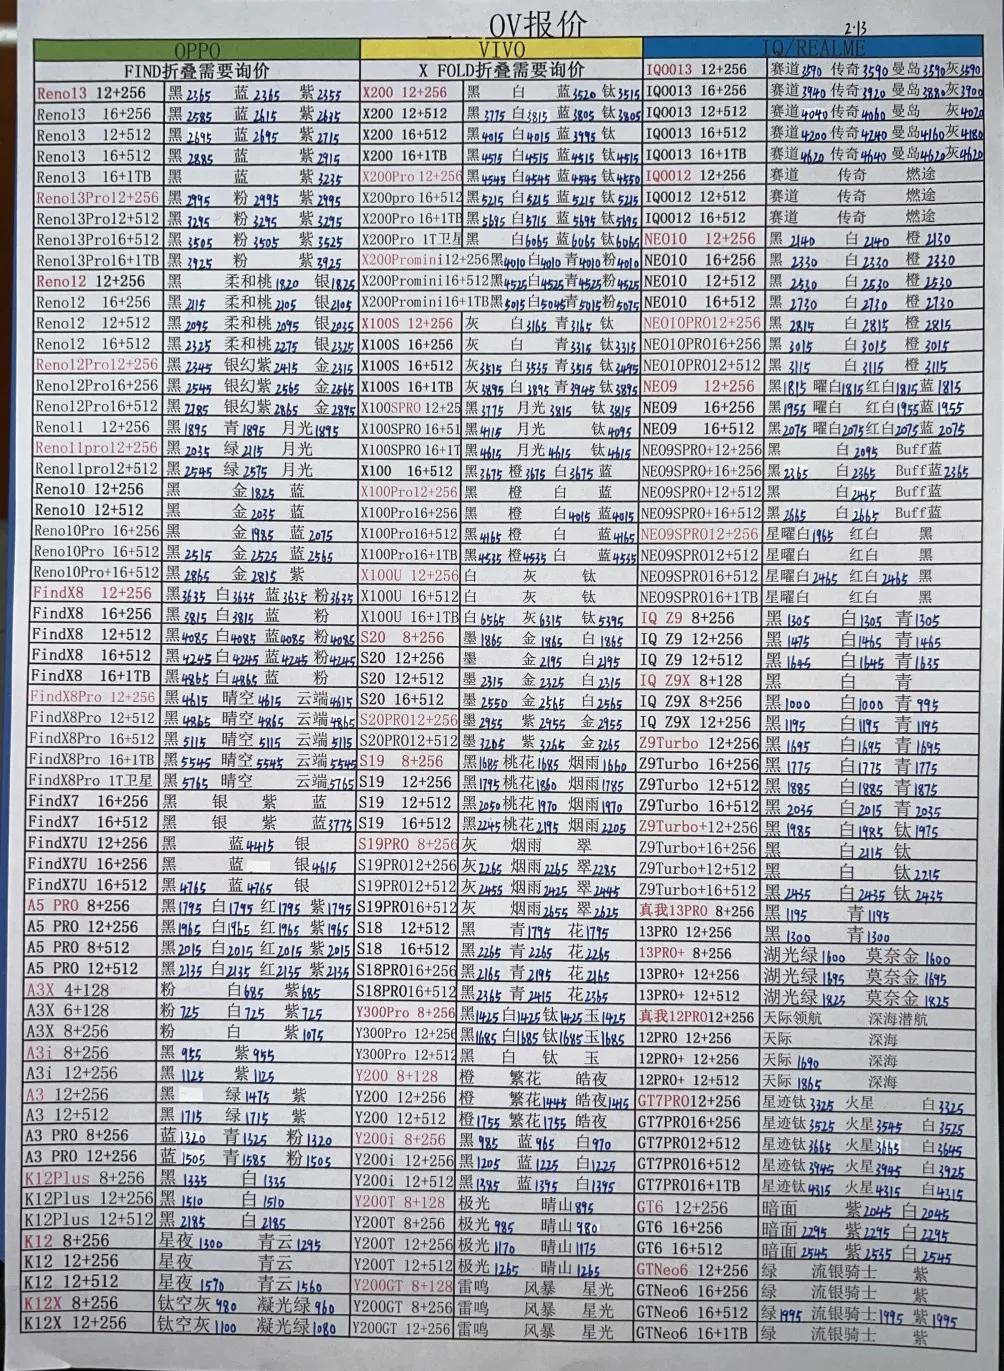 OV报价
2.13
OPPO
FIND折叠需要询价
Reno13 12+256 黑2365 蓝2365 紫2355
Reno13 16+256 黑2585 蓝2615 紫2635
Reno13 12+512 黑2695 蓝2695 紫2715
Reno13 16+512 黑2885 蓝 紫2915
Reno13 16+1TB 黑 蓝 紫3235
Reno13Pro12+256 黑2995 粉2995 紫2995
Reno13Pro12+512 黑3295 粉3295 紫3295
Reno13Pro16+512 黑3505 粉3505 紫3525
Reno13Pro16+1TB 黑3925 粉 紫3925
Reno12 12+256 黑 柔和桃1820 银1825
Reno12 16+256 黑2115 柔和桃2105 银2105
Reno12 12+512 黑2095 柔和桃2095 银2035
Reno12 16+512 黑2325 柔和桃2275 银2325
Reno12Pro12+256 黑2345 银幻紫2415 金2315
Reno12Pro16+256 黑2545 银幻紫2565 金2565
Reno12Pro16+512 黑2785 银幻紫2865 金2895
Reno11 12+256 黑1895 青1895 月光1895
Reno11pro12+256 黑2035 绿2115 月光
Reno11pro12+512 黑2545 绿2575 月光
Reno10 12+256 黑 金1825 蓝
Reno10 12+512 黑 金2035 蓝
Reno10Pro 16+256 黑 金1985 蓝2075
Reno10Pro 16+512 黑2515 金2525 蓝2565
Reno10Pro+16+512 黑2865 金2815 紫
FindX8 12+256 黑3635 白3635 蓝3635 粉3635
FindX8 16+256 黑3815 白3815 蓝 粉
FindX8 12+512 黑4085 白4085 蓝4085 粉4085
FindX8 16+512 黑4245 白4245 蓝4245 粉4245
FindX8 16+1TB 黑4865 白4865 蓝 粉
FindX8Pro 12+256 黑4615 晴空4615 云端4615
FindX8Pro 12+512 黑4865 晴空4865 云端4865
FindX8Pro 16+512 黑5115 晴空5115 云端5115
FindX8Pro 16+1TB 黑5545 晴空5545 云端5545
FindX8Pro 1T卫星 黑5765 晴空 云端5765
FindX7 16+256 黑 银 紫 蓝
FindX7 16+512 黑 银 紫 蓝3775
FindX7U 12+256 黑 蓝4415 银
FindX7U 16+256 黑 蓝 银4615
FindX7U 16+512 黑4765 蓝4765 银
A5 PRO 8+256 黑1795 白1795 红1795 紫1795
A5 PRO 12+256 黑1965 白1965 红1965 紫1965
A5 PRO 8+512 黑2015 白2015 红2015 紫2015
A5 PRO 12+512 黑2135 白2135 红2135 紫2135
A3X 4+128 粉 白685 紫685
A3X 6+128 粉725 白725 紫725
A3X 8+256 粉 白 紫1075
A3i 8+256 黑955 紫955
A3i 12+256 黑1125 紫1125
A3 12+256 黑 绿1475 紫
A3 12+512 黑1715 绿1715 紫
A3 PRO 8+256 蓝1320 青1325 粉1320
A3 PRO 12+256 蓝1505 青1585 粉1505
K12Plus 8+256 黑1335 白1335
K12Plus 12+256 黑1510 白1510
K12Plus 12+512 黑2185 白2185
K12 8+256 星夜1300 青云1295
K12 12+256 星夜 青云
K12 12+512 星夜1570 青云1560
K12X 8+256 钛空灰980 凝光绿960
K12X 12+256 钛空灰1100 凝光绿1080
VIVO
X FOLD折叠需要询价
X200 12+256 黑 白 蓝3520 钛3515
X200 12+512 黑3775 白3815 蓝3805 钛3805
X200 16+512 黑4015 白4015 蓝3995 钛
X200 16+1TB 黑4515 白4515 蓝4515 钛4515
X200Pro 12+256 黑4545 白4545 蓝4545 钛4550
X200pro 16+512 黑5215 白5215 蓝5215 钛5215
X200Pro 16+1TB 黑5685 白5715 蓝5695 钛5695
X200Pro 1T卫星 黑 白6065 蓝6065 钛6065
X200Promini12+256 黑4010 白4010 青4010 粉4010
X200Promini16+512 黑4525 白4525 青4525 粉4525
X200Promini16+1TB 黑5015 白5045 青5015 粉5075
X100S 12+256 灰 白3165 青3165 钛
X100S 16+256 灰 白 青3315 钛3315
X100S 16+512 灰3515 白3535 青3515 钛3495
X100S 16+1TB 灰3895 白3895 青3945 钛3895
X100SPRO 12+25 黑3775 月光3815 钛3815
X100SPRO 16+51 黑4115 月光 钛4095
X100SPRO 16+1T 黑4615 月光4615 钛4615
X100 16+512 黑3675 橙3675 白3675 蓝
X100Pro12+256 黑 橙 白 蓝
X100Pro16+256 黑 橙 白4015 蓝4015
X100Pro16+512 黑4165 橙 白 蓝4165
X100Pro16+1TB 黑4535 橙4535 白 蓝4535
X100U 12+256 白 灰 钛
X100U 16+512 白 灰 钛
X100U 16+1TB 白6565 灰6315 钛5395
S20 8+256 墨1865 金1865 白1865
S20 12+256 墨 金2195 白2195
S20 12+512 墨2315 金2325 白2315
S20 16+512 墨2550 金2565 白2565
S20PRO12+256 墨2955 紫2955 金2955
S20PRO12+512 墨3205 紫3265 金3265
S19 8+256 黑1685 桃花1685 烟雨1660
S19 12+256 黑1795 桃花1860 烟雨1785
S19 12+512 黑2050 桃花1970 烟雨1970
S19 16+512 黑2245 桃花2195 烟雨2205
S19PRO 8+256 灰 烟雨 翠
S19PRO12+256 灰2265 烟雨2265 翠2285
S19PRO12+512 灰2455 烟雨2425 翠2445
S19PRO16+512 灰 烟雨2655 翠2625
S18 12+512 黑 青1795 花1795
S18 16+512 黑2265 青2265 花2265
S18PRO16+256 黑2165 青2195 花2165
S18PRO16+512 黑2365 青2415 花2365
Y300Pro 8+256 黑1425 白1425 钛1425 玉1425
Y300Pro 12+256 黑1685 白1685 钛1685 玉1685
Y300Pro 12+512 黑 白 钛 玉
Y200 8+128 橙 繁花 皓夜
Y200 12+256 橙 繁花1445 皓夜1415
Y200 12+512 橙1755 繁花1755 皓夜
Y200i 8+256 黑985 蓝965 白970
Y200i 12+256 黑1205 蓝1225 白1225
Y200i 12+512 黑1385 蓝1395 白1395
Y200T 8+128 极光 晴山895
Y200T 8+256 极光985 晴山980
Y200T 12+256 极光1170 晴山1175
Y200T 12+512 极光1265 晴山1265
Y200GT 8+128 雷鸣 风暴 星光
Y200GT 8+256 雷鸣 风暴 星光
Y200GT 12+256 雷鸣 风暴 星光
IQ/REALME
IQOO13 12+256 赛道3590 传奇3590 曼岛3590 灰3590
IQOO13 16+256 赛道3940 传奇3920 曼岛3880 灰3900
IQOO13 12+512 赛道4040 传奇4060 曼岛 灰4020
IQOO13 16+512 赛道4200 传奇4240 曼岛4160 灰4180
IQOO13 16+1TB 赛道4620 传奇4640 曼岛4620 灰4620
IQOO12 12+256 赛道 传奇 燃途
IQOO12 12+512 赛道 传奇 燃途
IQOO12 16+512 赛道 传奇 燃途
NEO10 12+256 黑2140 白2140 橙2130
NEO10 16+256 黑2330 白2330 橙2330
NEO10 12+512 黑2530 白2530 橙2530
NEO10 16+512 黑2730 白2730 橙2730
NEO10PRO12+256 黑2815 白2815 橙2815
NEO10PRO16+256 黑3015 白3015 橙3015
NEO10PRO12+512 黑3115 白3115 橙3115
NEO9 12+256 黑1815 曜白1815 红白1815 蓝1815
NEO9 16+256 黑1955 曜白 红白1955 蓝1955
NEO9 16+512 黑2075 曜白2075 红白2075 蓝2075
NEO9SPRO+12+256 黑 白2095 Buff蓝
NEO9SPRO+16+256 黑2365 白2365 Buff蓝2365
NEO9SPRO+12+512 黑 白2465 Buff蓝
NEO9SPRO+16+512 黑2665 白2665 Buff蓝
NEO9SPRO12+256 星曜白1965 红白 黑
NEO9SPRO12+512 星曜白 红白 黑
NEO9SPRO16+512 星曜白2465 红白2465 黑
NEO9SPRO16+1TB 星曜白 红白 黑
IQ Z9 8+256 黑1305 白1305 青1305
IQ Z9 12+256 黑1475 白1465 青1465
IQ Z9 12+512 黑1645 白1645 青1635
IQ Z9X 8+128 黑 白 青
IQ Z9X 8+256 黑1000 白1000 青995
IQ Z9X 12+256 黑1195 白1195 青1195
Z9Turbo 12+256 黑1695 白1695 青1695
Z9Turbo 16+256 黑1775 白1775 青1775
Z9Turbo 12+512 黑1885 白1885 青1875
Z9Turbo 16+512 黑2035 白2015 青2035
Z9Turbo+12+256 黑1985 白1985 钛1975
Z9Turbo+16+256 黑 白2115 钛
Z9Turbo+12+512 黑 白 钛2215
Z9Turbo+16+512 黑2435 白2435 钛2435
真我13PRO 8+256 黑1195 青1195
13PRO 12+512 黑1300 青1300
13PRO+ 8+256 湖光绿1600 莫奈金1600
13PRO+ 12+256 湖光绿1695 莫奈金1695
13PRO+ 12+512 湖光绿1825 莫奈金1825
真我12PRO12+256 天际领航 深海潜航
12PRO 12+256 天际 深海
12PRO+ 12+256 天际1690 深海
12PRO+ 12+512 天际1865 深海
GT7PRO12+256 星迹钛3325 火星 白3325
GT7PRO16+256 星迹钛3525 火星3545 白3525
GT7PRO12+512 星迹钛3665 火星3665 白3645
GT7PRO16+512 星迹钛3945 火星3945 白3925
GT7PRO16+1TB 星迹钛4315 火星4315 白4315
GT6 12+256 暗面 紫2045 白2045
GT6 16+256 暗面2295 紫2295 白2295
GT6 16+512 暗面2545 紫2535 白2545
GTNeo6 12+256 绿 流银骑士 紫
GTNeo6 16+256 绿 流银骑士 紫
GTNeo6 16+512 绿1995 流银骑士1995 紫1995
GTNeo6 16+1TB 绿 流银骑士 紫